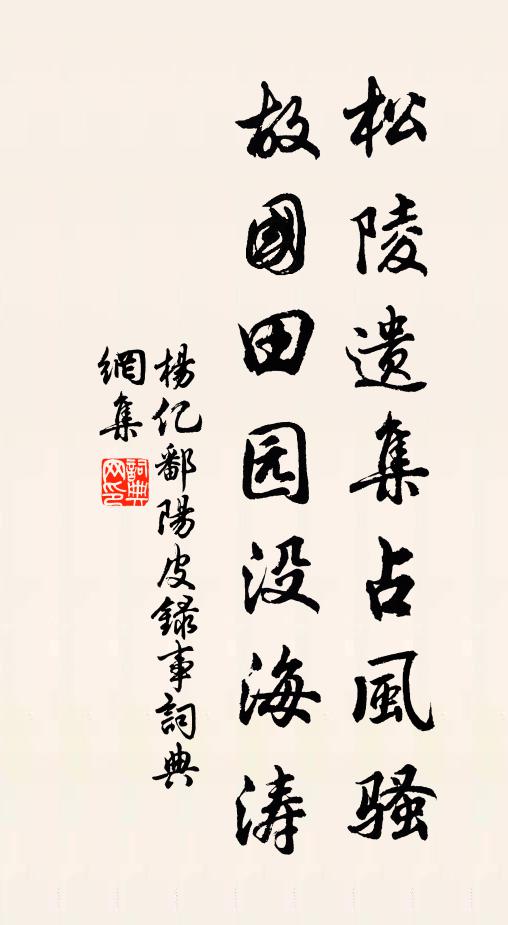 松陵遗集占風骚
故國田园没海涛
楊亿鄱陽皮録事詞典
網集
詞典網印